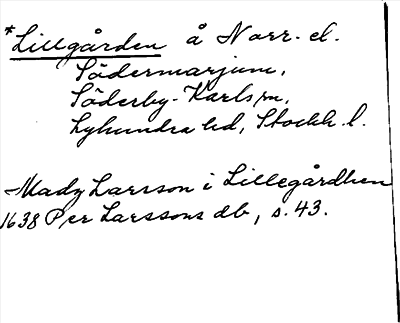 *Lillgården å Norr- el.
Södermarjum,
Söderby-Karls sn,
Lyhundra hd, Stockh. l.
Mady Larsson i Lillegårdhen
1638 Per Larssons db, s. 43.